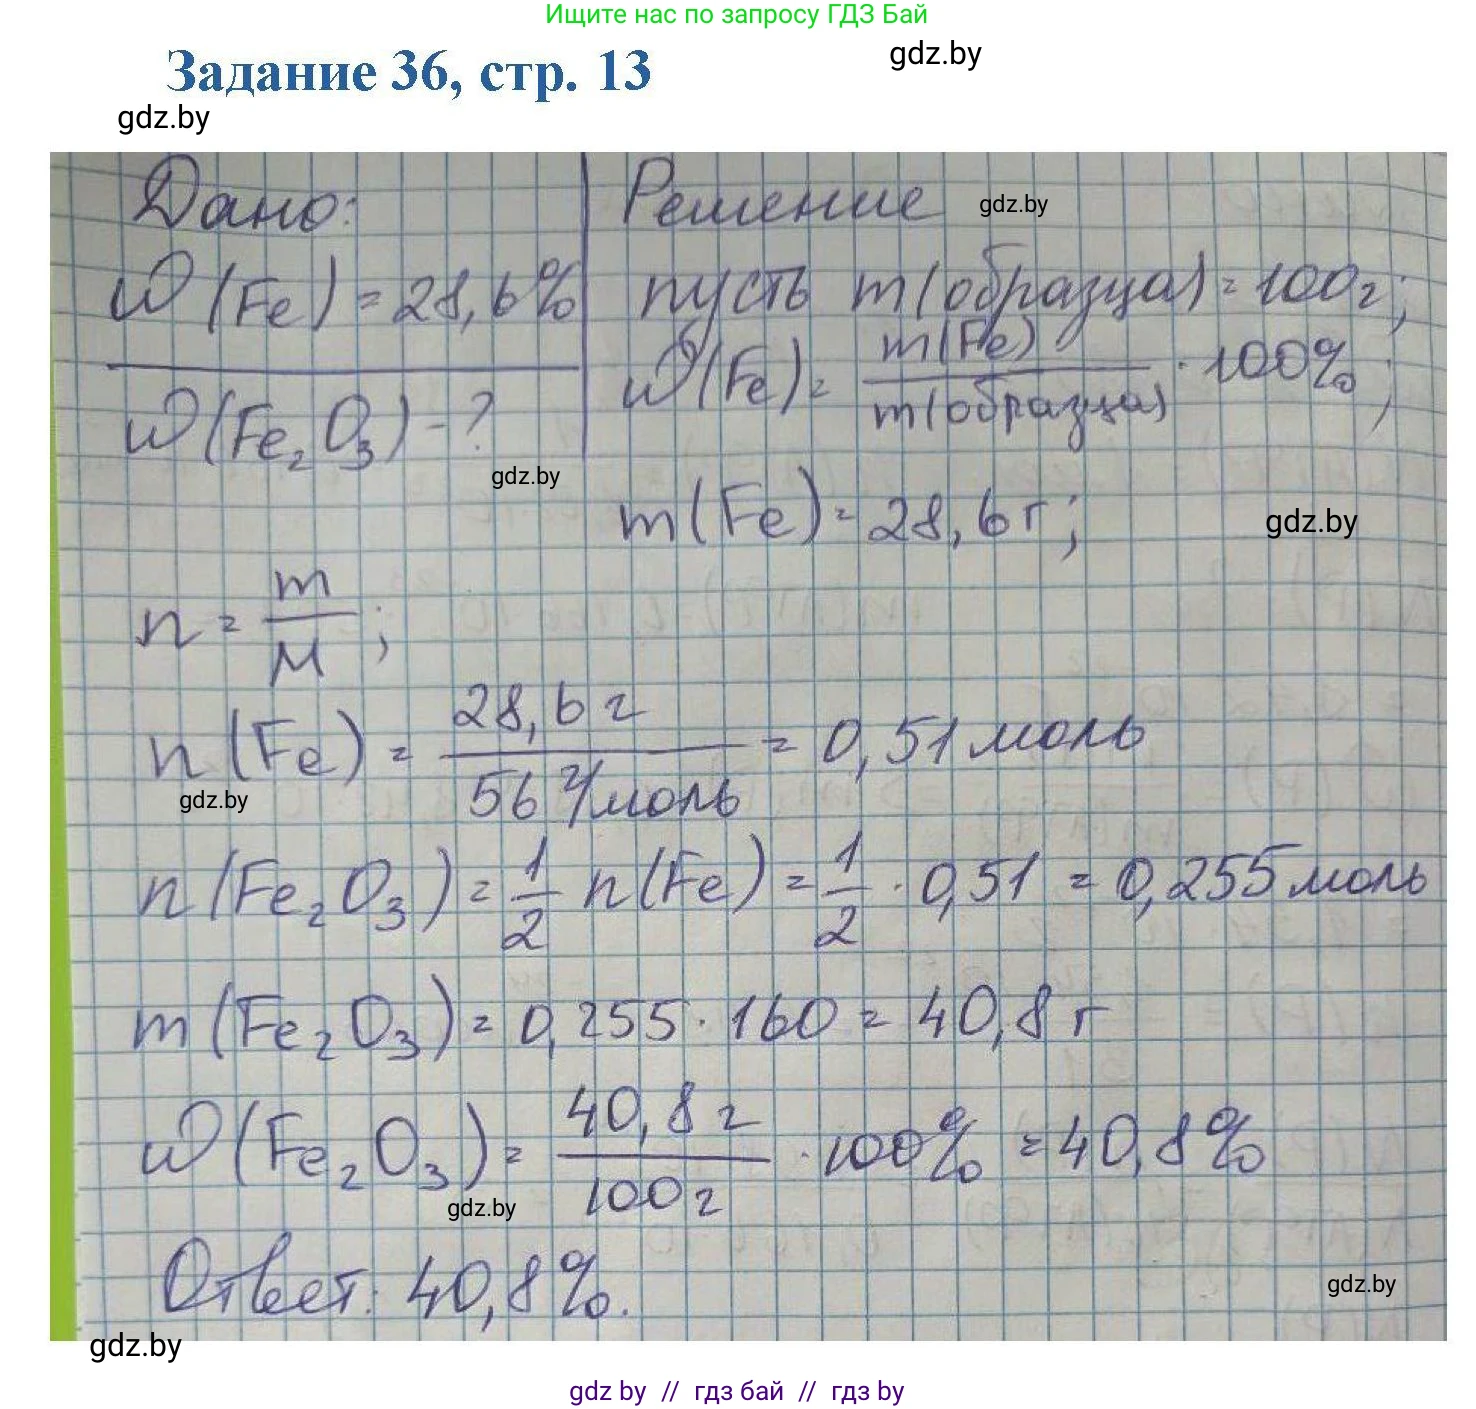 Ищите нас по запросу ГДЗ Бай
Задание 36, стр. 13
gdz.by
gdz.by
Дано:
Решение
gdz.by
w(Fe) = 28,6%
пусть m(образца) = 100г;
w(Fe) = m(Fe)/m(образца) · 100%;
w(Fe₂O₃) - ?
gdz.by
m(Fe) = 28,6 г;
gdz.by
n = m/M;
n(Fe) = 28,6 г/56 г/моль = 0,51 моль
gdz.by
n(Fe₂O₃) = 1/2 n(Fe) = 1/2 · 0,51 = 0,255 моль
m(Fe₂O₃) = 0,255 · 160 = 40,8 г
w(Fe₂O₃) = 40,8 г/100 г · 100% = 40,8%
gdz.by
Ответ: 40,8%.
gdz.by
gdz.by
gdz by // гдз бай // гдз by